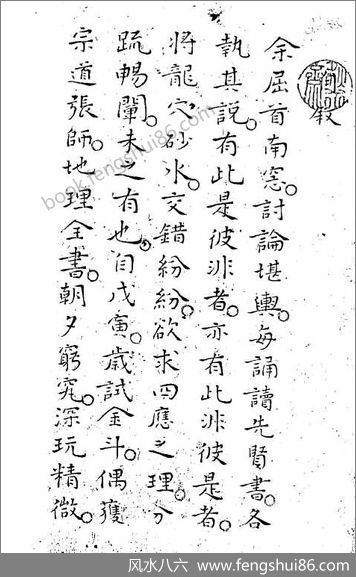 叙
余屈首南窓。討論堪輿。每誦讀先賢書。各
執其說。有此是彼非者。亦有此非彼是者。
將龍穴砂水。交錯紛紛。欲求四應之理。分
疏暢闡。未之有也。自戊寅。歲試金斗。偶獲
宗道張師。地理全書。朝夕窮究。深玩精微。
book.fengshui86.com
风水八六 www.fengshui86.com